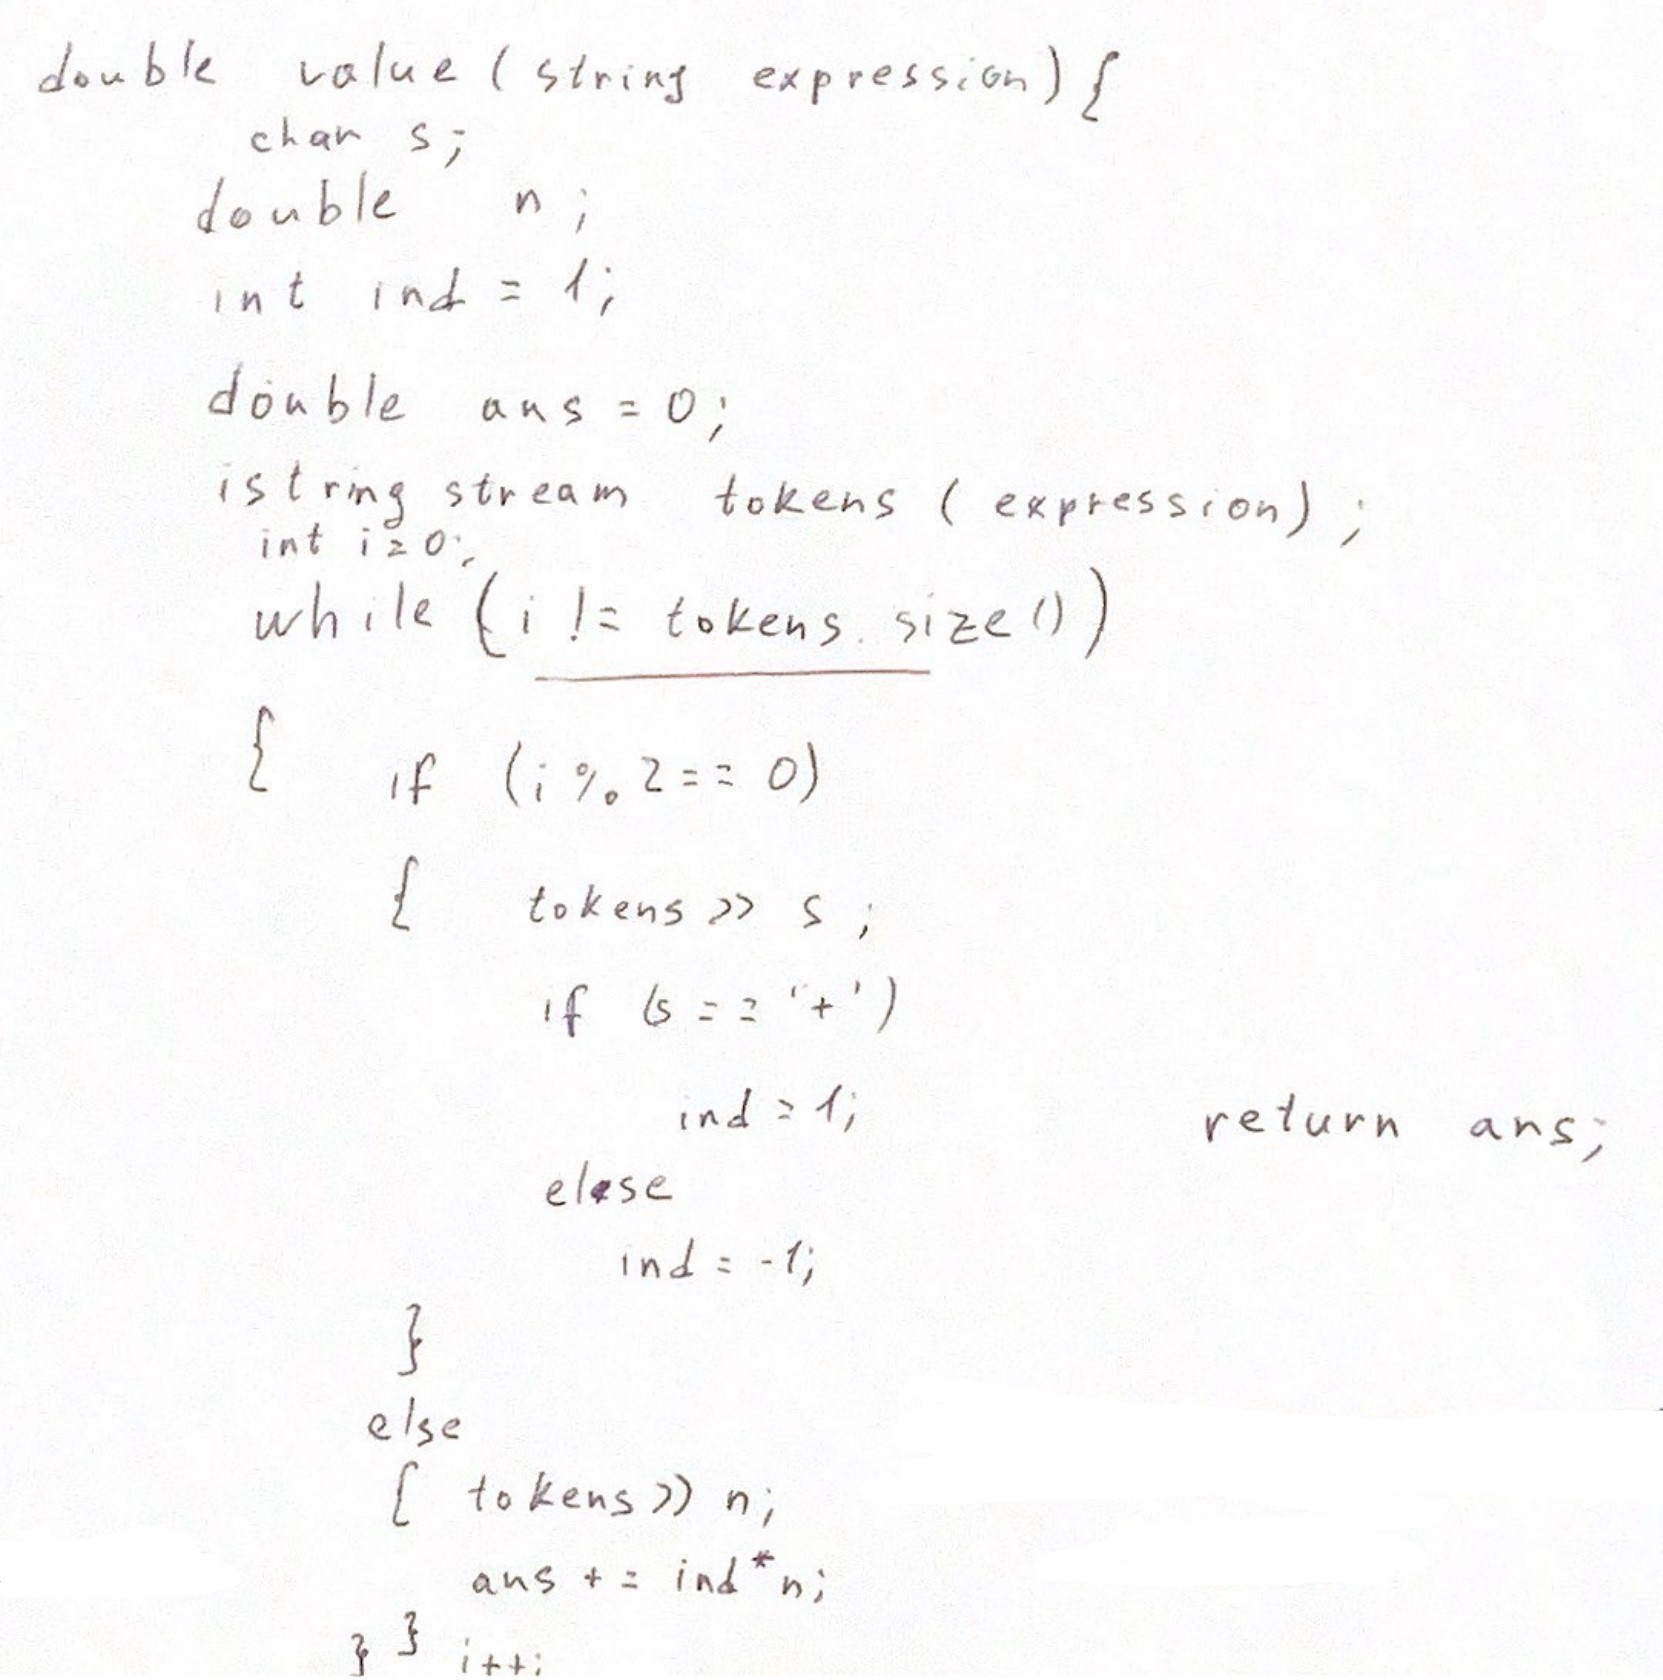 double value (string expression) {
char s;
double n;
int ind = 1;
double ans = 0;
istringstream tokens (expression);
int i=0;
while (i != tokens.size())
{ if (i % 2 == 0)
{ tokens >> s;
if (s == '+')
ind = 1;
return ans;
else
ind = -1;
}
else
{ tokens >> n;
ans += ind*n;
} } i++;